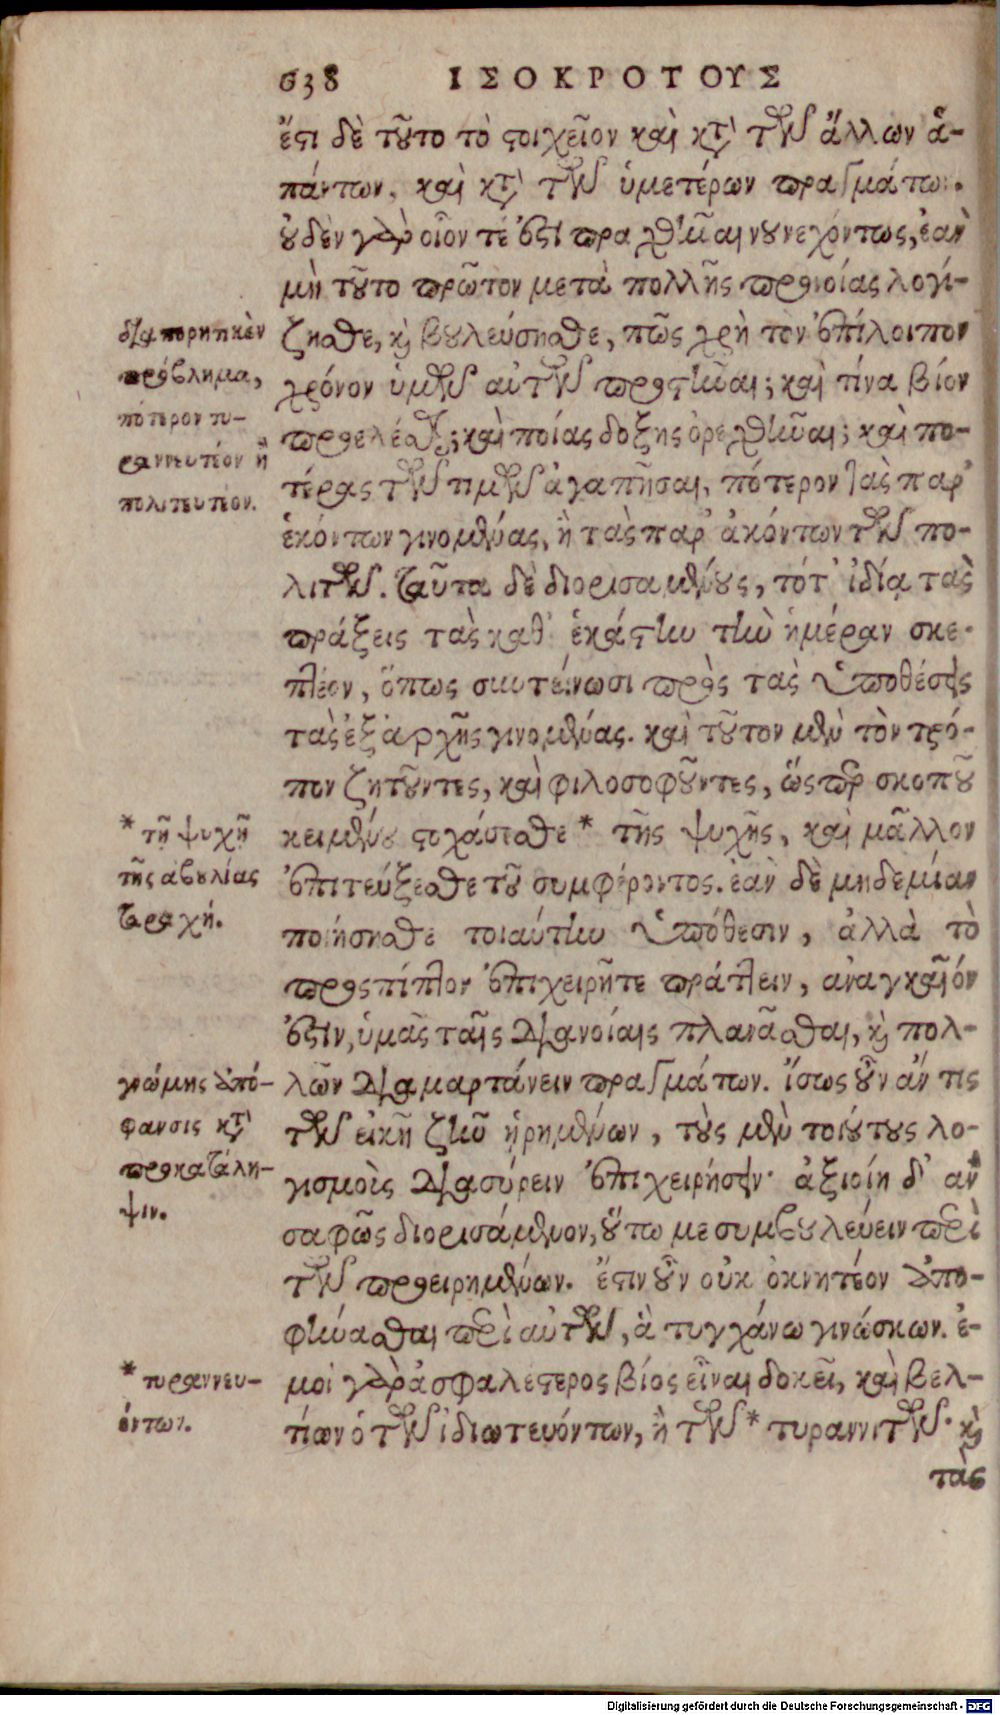 638 ΙΣΟΚΡΟΤΟΥΣ
ἔστι δὲ τοῦτο τὸ στοιχεῖον καὶ κατὰ τῶν ἄλλων ἁ-
πάντων, καὶ κατὰ τῶν ὑμετέρων πραγμάτων.
οὐδὲν γὰρ οἷόν τέ ἐστι πραχθῆναι νουνεχόντως, ἐὰν
μὴ τοῦτο πρῶτον μετὰ πολλῆς προνοίας λογί-
ζησθε, καὶ βουλεύσησθε, πῶς χρὴ τὸν ἐπίλοιπον
χρόνον ὑμῶν αὐτῶν προστῆναι; καὶ τίνα βίον
προελέσθαι; καὶ ποίας δόξης ὀρεχθῆναι; καὶ πο-
τέρας τῶν τιμῶν ἀγαπῆσαι, πότερον τὰς παρ’
ἑκόντων γινομένας, ἢ τὰς παρ’ ἀκόντων τῶν πο-
λιτῶν. ταῦτα δὲ διορισαμένους, τότ’ ἰδίᾳ τὰς
πράξεις τὰς καθ’ ἑκάστην τὴν ἡμέραν σκε-
πτέον, ὅπως συντείνωσι πρὸς τὰς ὑποθέσεις
τὰς ἐξ ἀρχῆς γινομένας. καὶ τοῦτον μὲν τὸν τρό-
πον ζητοῦντες, καὶ φιλοσοφοῦντες, ὥσπερ σκοποῦ
κειμένου στοχάσεσθε * τῆς ψυχῆς, καὶ μᾶλλον
ἐπιτεύξεσθε τοῦ συμφέροντος. ἐὰν δὲ μηδεμίαν
ποιήσησθε τοιαύτην ὑπόθεσιν, ἀλλὰ τὸ
προσπίπτον ἐπιχειρῆτε πράττειν, ἀναγκαῖόν
ἐστιν, ὑμᾶς ταῖς διανοίαις πλανᾶσθαι, καὶ πολ-
λῶν διαμαρτάνειν πραγμάτων. ἴσως οὖν ἄν τις
τῶν εἰκῆ ζῆν ᾑρημένων, τοὺς μὲν τοιούτους λο-
γισμοὺς διασύρειν ἐπιχειρήσειεν· ἀξιοίη δ’ ἂν
σαφῶς διορισάμενον, οὕτω με συμβουλεύειν περὶ
τῶν προειρημένων. ἔστιν οὖν οὐκ ὀκνητέον ἀπο-
φήνασθαι περὶ αὐτῶν, ἃ τυγχάνω γινώσκων. ἐ-
μοὶ γὰρ ἀσφαλέστερος βίος εἶναι δοκεῖ, καὶ βελ-
τίων ὁ τῶν ἰδιωτευόντων, ἢ τῶν * τυραννιτῶν· καὶ
τὰς
διαπορητικὸν
πρόβλημα,
πότερον τυ-
ραννευτέον ἢ
πολιτευτέον.
* τῇ ψυχῇ
τῆς ἀβουλίας
ταραχή.
γνώμης ἀπό-
φανσις κατὰ
προκατάλη-
ψιν.
* τυραννευ-
όντων.
Digitalisierung gefördert durch die Deutsche Forschungsgemeinschaft - DFG